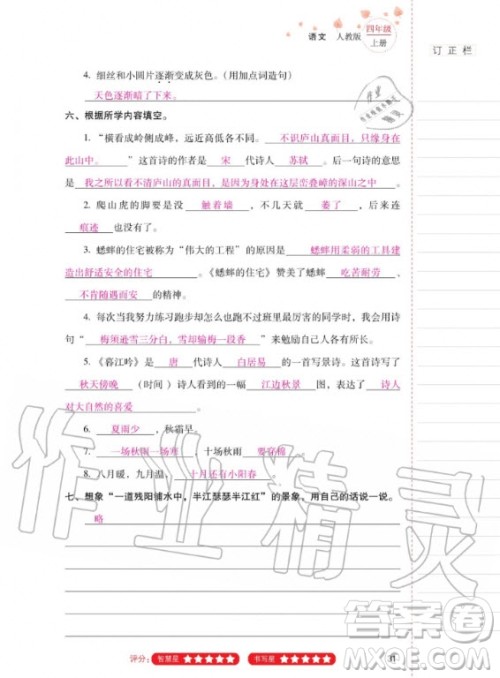 语文 人教版 四年级
上册
订正栏
4. 细纹和小圆片逐渐变成灰色。(用加点词造句)
天色逐渐暗了下来。
六、根据所学内容填空。
1. “横看成岭侧成峰,远近高低各不同。 不识庐山真面目,只缘身在
此山中。 ”这首诗的作者是 宋 代诗人 苏轼 。后一句诗的意思
是 我之所以看不清庐山的真面目,是因为身处在这层峦叠嶂的深山之中 。
2. 爬山虎的脚要是没 触着墙 ,不几天就 萎了 ,后来连
痕迹 也没有了。
3. 蟋蟀的住宅被称为“伟大的工程”的原因是 蟋蟀用柔弱的工具建
造出舒适安全的住宅 。《蟋蟀的住宅》赞美了蟋蟀 吃苦耐劳 、
不肯随遇而安 的精神。
4. 每次当我努力练习跑步却怎么也不如跑步最厉害的同学时,我会
用“ 梅须逊雪三分白,雪却输梅一段香 ”来勉励自己人各有所长。
5. 《暮江吟》是 唐 代诗人 白居易 的一首写景诗。这首诗写了
秋天傍晚 (时间)诗人看到的一幅 江边秋景 图,表达了 诗人
对大自然的喜爱 。
6. 夏雨少 ,秋霜早。
7. 一场秋雨一场寒 ,十场秋雨 要穿棉 。
8. 八月暖,九月温, 十月还有小阳春 。
七、想象“一道残阳铺水中,半江瑟瑟半江红”的景象,用自己的话说一说。
略
作业精灵
答案圈
MXQE.COM
评分: 智慧星 ★★★★★ 书写星 ★★★★★